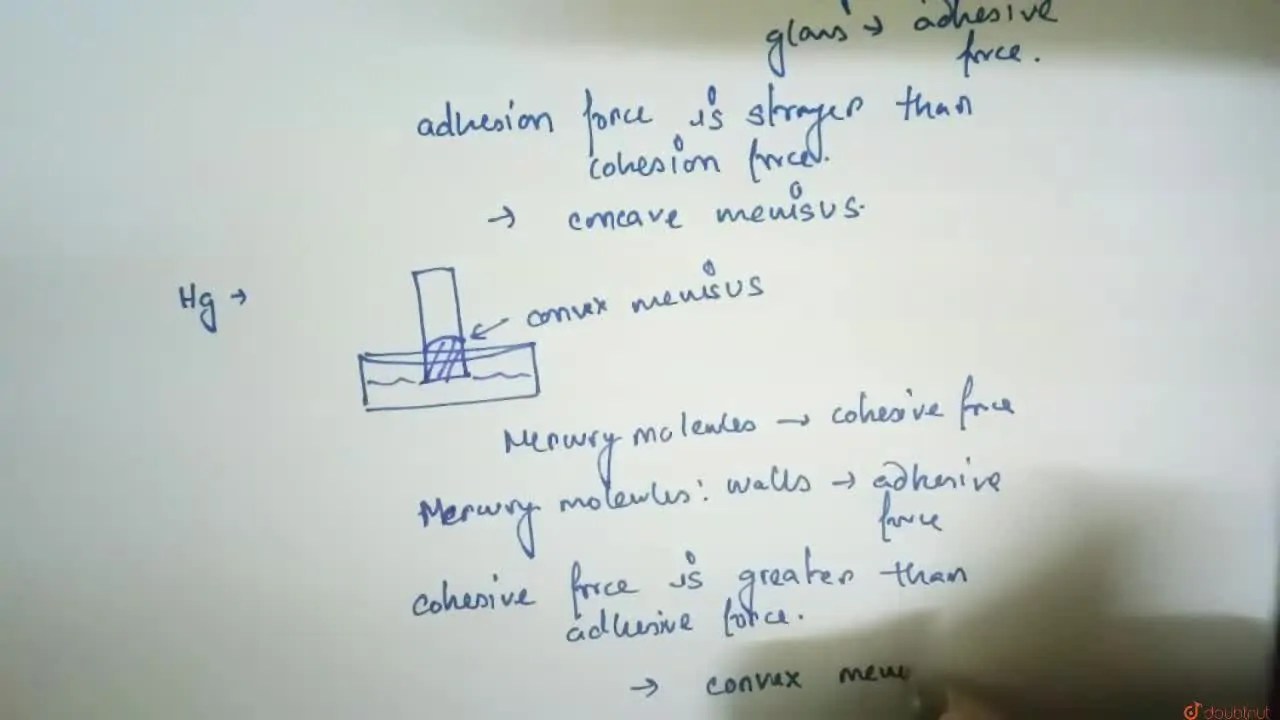 glass → adhesive
force.
adhesion force is stronger than
cohesion force.
→ concave menisus.
Hg →
convex menisus
Mercury molecules → cohesive force
Mercury molecules: walls → adhesive
force
cohesive force is greater than
adhesive force.
→ convex meni
doubtnut